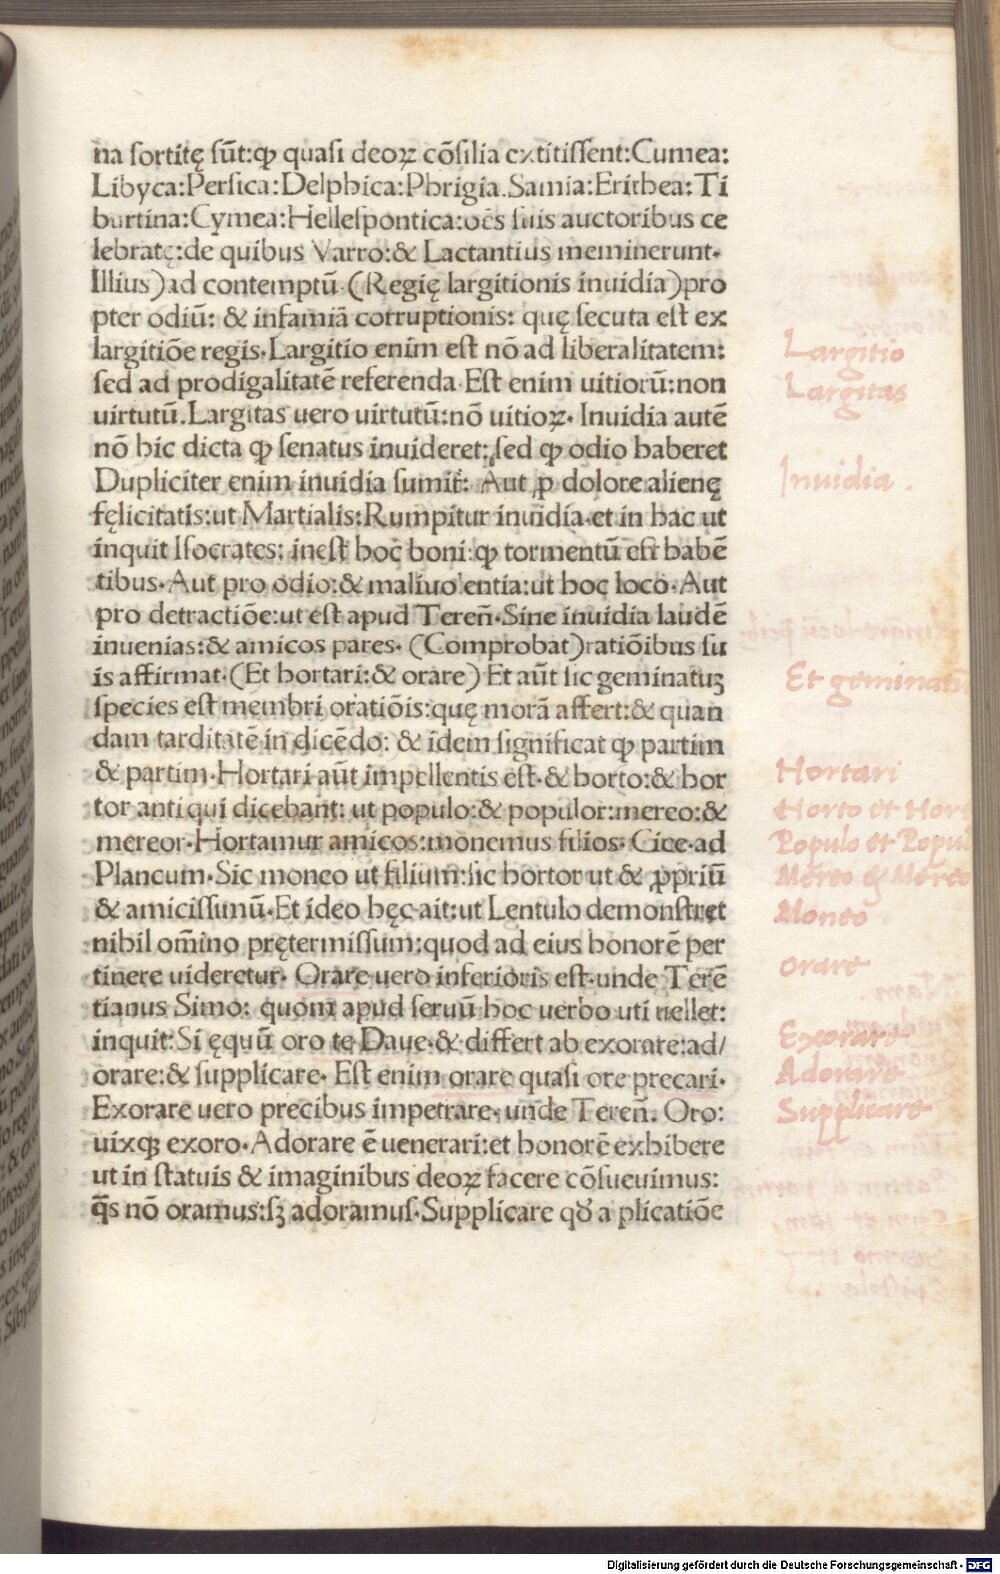 na sortitę sūt:ꝙ quasi deoꝝ cōsilia extitissent:Cumea:
Libyca:Persica:Delphica:Phrigia.Samia:Erithea:Ti
burtina:Cymea:Hellespontica:oēs suis auctoribus ce
lebratę:de quibus Varro:& Lactantius meminerunt·
Illius)ad contemptū·(Regię largitionis inuidia)pro
pter odiū: & infamiā corruptionis: quę secuta est ex
largitiōe regis·Largitio enim est nō ad liberalitatem:
Largitio
sed ad prodigalitatē referenda·Est enim uitiorū:non
Largitas
uirtutū.Largitas uero uirtutū:nō uitioꝝ· Inuidia autē
nō hic dicta ꝙ senatus inuideret:sed ꝙ odio haberet
Dupliciter enim inuidia sumit̄: Aut ꝓ dolore alienę
Inuidia .
fęlicitatis:ut Martialis:Rumpitur inuidia·et in hac ut
inquit Isocrates: inest hoc boni:ꝙ tormentū est habē
tibus·Aut pro odio:& maliuolentia:ut hoc loco·Aut
pro detractiōe:ut est apud Tereñ·Sine inuidia laudē
inuenias:& amicos pares· (Comprobat)ratiōibus su
is affirmat·(Et hortari:& orare) Et aūt sic geminatuꝫ
Et geminatū
species est membri oratiōis:quę morā affert:& quan
dam tarditatē in dicēdo: & idem significat ꝙ partim
& partim·Hortari aūt impellentis est·& horto:& hor
Hortari
tor antiqui dicebant: ut populo:& populor:mereo:&
Horto et Hort
mereor·Hortamur amicos:monemus filios· Cice·ad
Populo et Popul
Plancum·Sic moneo ut filium:sic hortor ut & ꝓpriū
Mereo & Mereo
& amicissunū·Et ideo hęc ait:ut Lentulo demonstret
Moneo
nihil om̄ino prętermissum:quod ad eius honorē per
tinere uideretur· Orare uero inferioris est·unde Terē
Orare
tianus Simo: quom apud seruū hoc uerbo uti uellet:
inquit:Si ęquū oro te Daue·& differt ab exorare:ad/
Exorare
orare:& supplicare· Est enim orare quasi ore precari·
Adorare
Exorare uero precibus impetrare·unde Tereñ. Oro:
Supplicare
uixqꝫ exoro·Adorare ē uenerari:et honorē exhibere
ut in statuis & imaginibus deoꝝ facere cōsueuimus:
q̄s nō oramus:sꝫ adoramus·Supplicare qđ a plicatiōe
Digitalisierung gefördert durch die Deutsche Forschungsgemeinschaft - DFG